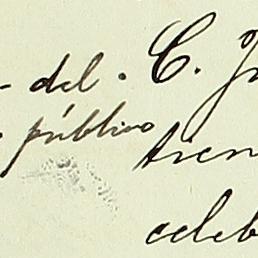 - del . C. J
público
tien
celeb